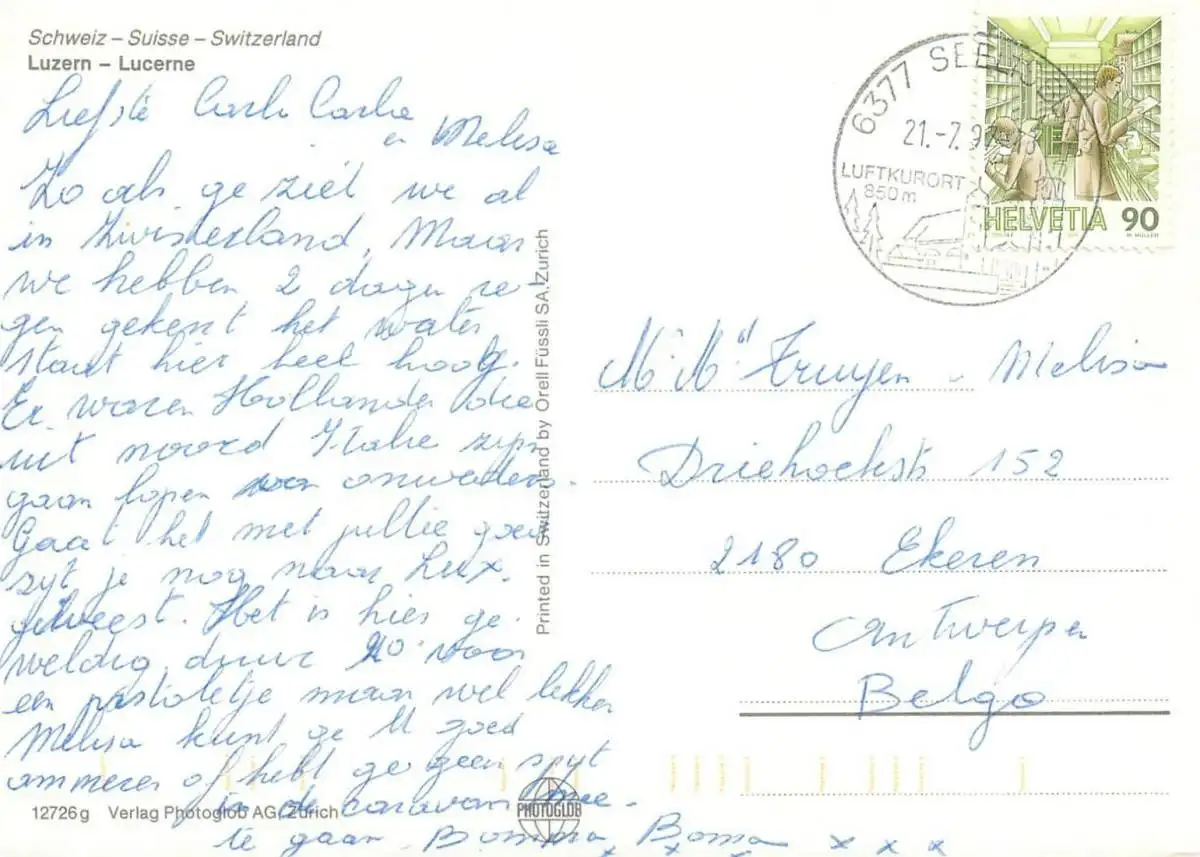 Schweiz – Suisse – Switzerland
Luzern – Lucerne
Liefste Carli Carla
en Melisa
Zo als ge ziet we al
in Zwisterland, Maar
we hebben 2 dagen re-
gen gekent het water
staat hier heel hoog.
Er waren Hollander die
uit noord Italie zijn
gaan lopen voor onweders.
Gaat het met jullie goed
zyt je nog naar Lux.
geweest. Het is hier ge-
weldig duur 10 voor
een pistoletje maar wel lekker
Melisa kunt ge U goed
ammeren of hebt ge geen spyt
in de caravan mee
te gaan. Bomma Boma x x x
12726g Verlag Photoglob AG, Zürich
PHOTOGLOB
Printed in Switzerland by Orell Füssli SA, Zurich
6377 SEEL
21.-7.
LUFTKURORT
850m
HELVETIA 90
M. MÜLLER
M. M" Truyen Melisa
Driehoekstr 152
2180 Ekeren
Antwerpen
Belgo